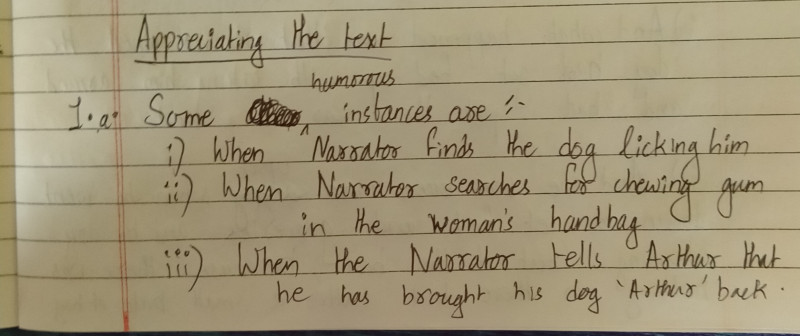 Appreciating the text
humorous
1.a. Some instances are :-
i) When Narrator finds the dog licking him
ii) When Narrator searches for chewing gum
in the woman's handbag
iii) When the Narrator tells Arthur that
he has brought his dog 'Arthur' back.